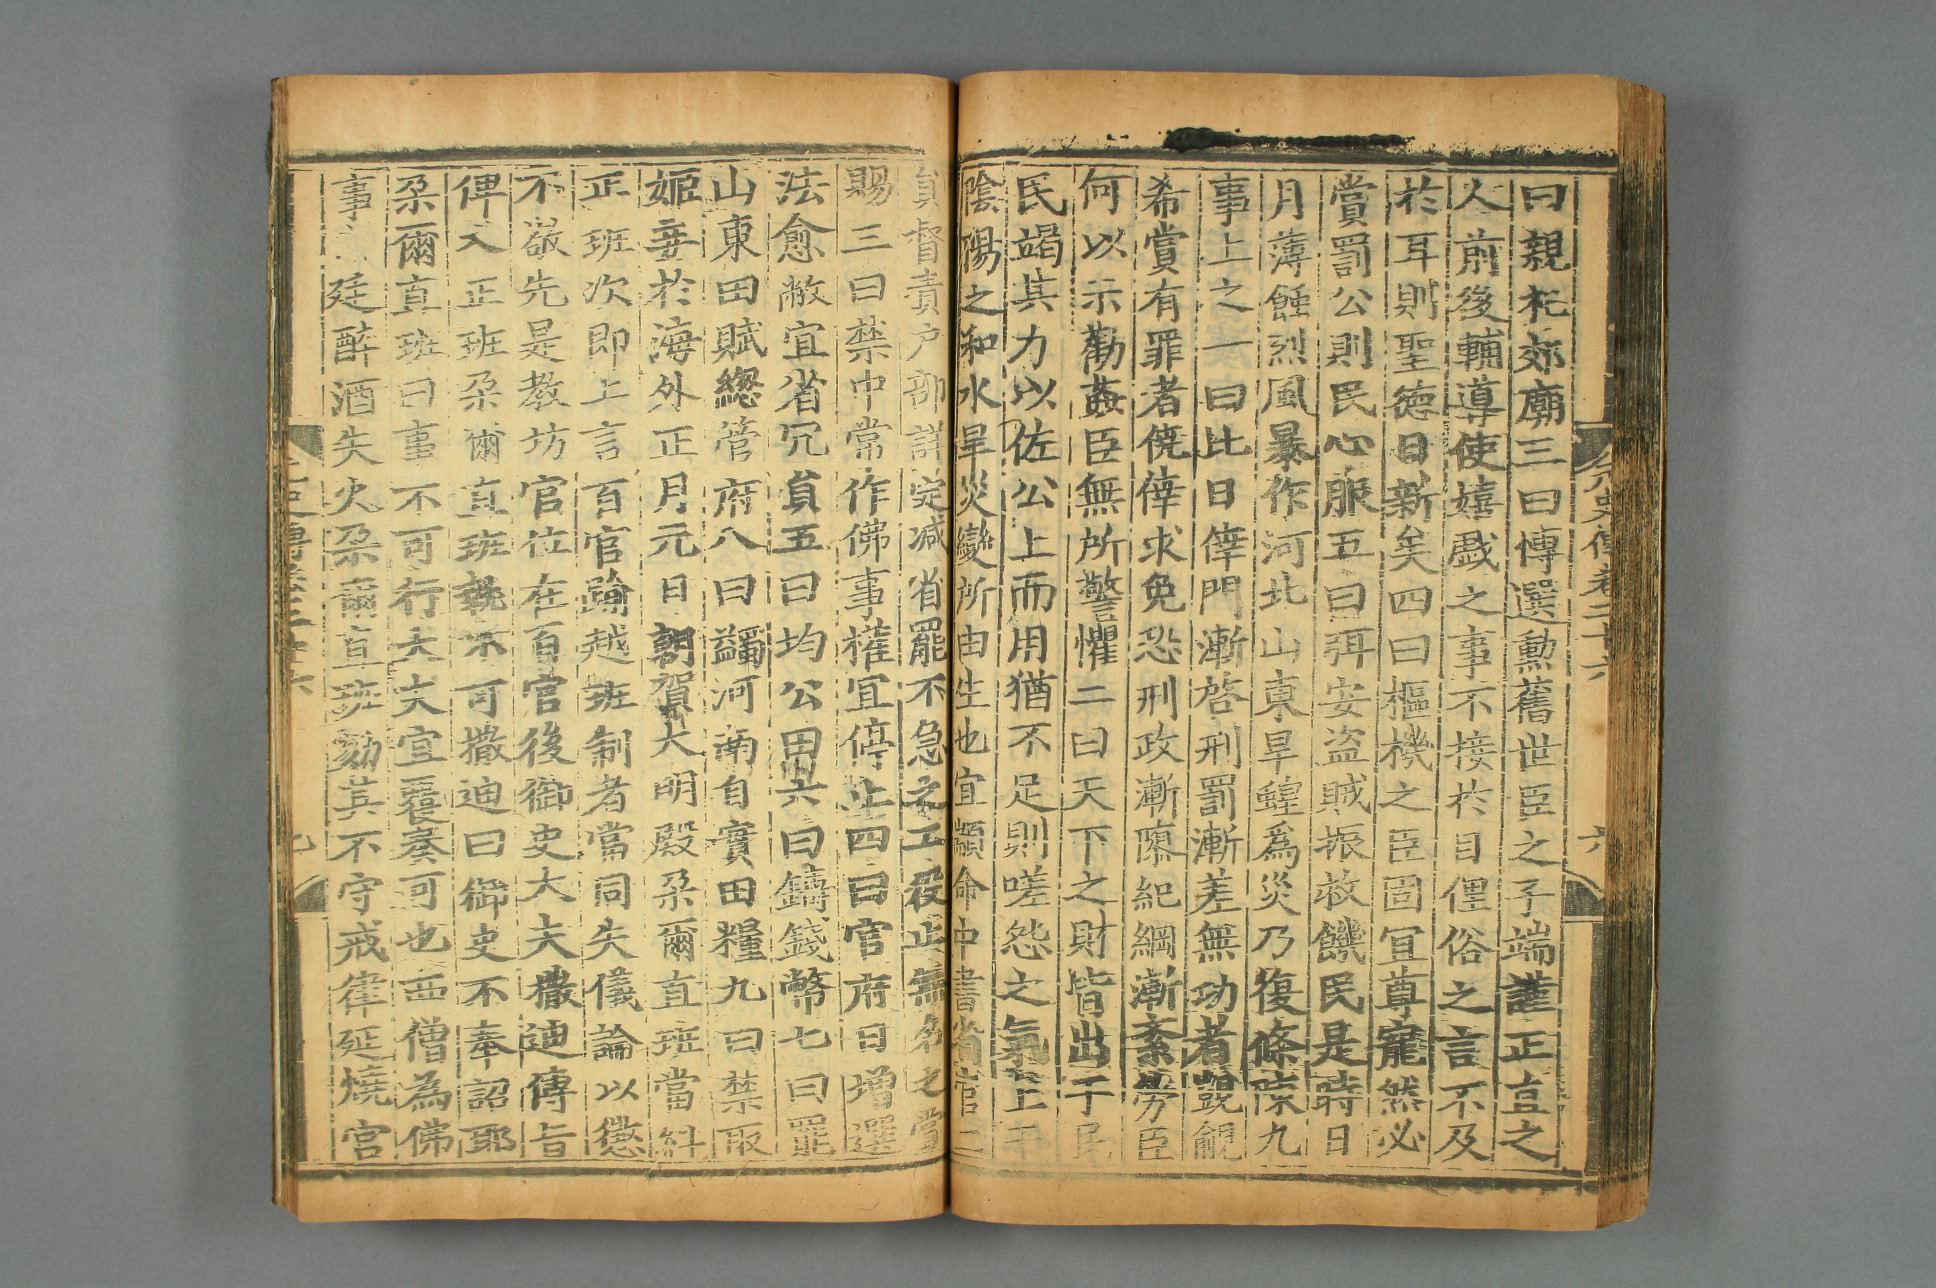 曰親祀郊廟三曰愽選勳舊世臣之子端謹正直之
人前後輔導使嬉戲之事不接於目俚俗之言不及
於耳則聖德日新矣四曰樞機之臣固宜尊寵然必
賞罰公則民心服五曰弭安盗賊振救饑民是時日
月薄蝕烈風暴作河北山東旱蝗爲災乃復條陳九
事上之一曰比日倖門漸啓刑罰漸差無功者覬覦
希賞有罪者僥倖求免恐刑政漸隳紀綱漸紊勞臣
何以示勸姦臣無所警懼二曰天下之財皆出于民
民竭其力以佐公上而用猶不足則嗟怨之氣上干
隂陽之和水旱災變所由生也宜顓命中書省官二
員督責户部詳定減省罷不急之工役止無名之賞
賜三曰禁中常作佛事權宜停止四曰官府日增選
法愈敝宜省冗員五曰均公田六曰鑄錢幣七曰罷
山東田賦緫管府八曰蠲河南自實田糧九曰禁取
姬妾於海外正月元日朝賀大明殿朶爾直班當糾
正班次即上言百官踰越班制者當同失儀論以懲
不嚴先是教坊官位在百官後御史大夫撒迪傳旨
俾入正班朶爾直班執不可撒迪曰御史不奉詔耶
朶爾直班曰事不可行大夫宜覆奏可也西僧為佛
事 廷醉酒失火朶爾直班劾其不守戒律延燒宫
史傳卷二十六
六
史傳卷二十六
七